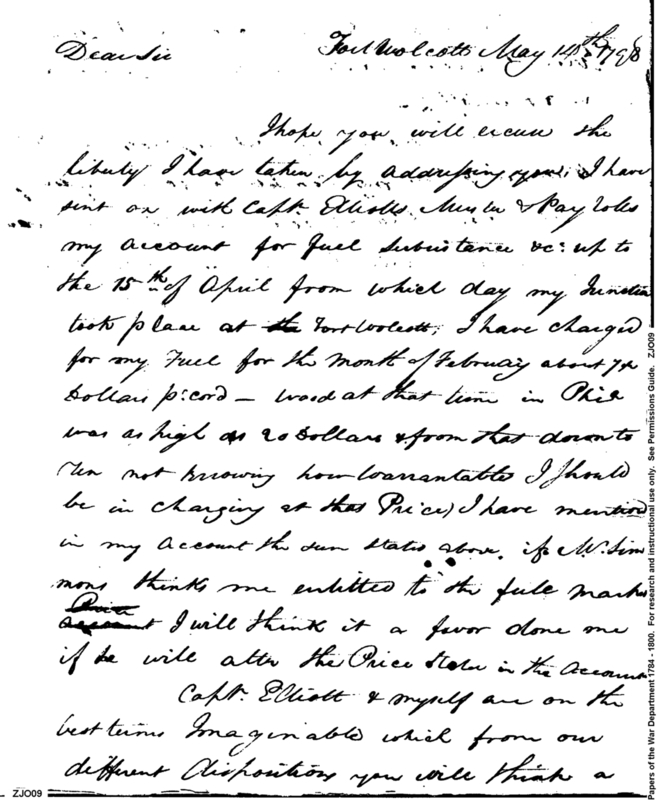 Dear Sir
Fort Wolcott May 14th 1798
I hope you will excuse the
liberty I have taken by addressing you. I have
sent on with Capt. Elliotts Muster & Pay roles
my account for fuel subsistance &c: up to
the 15th of April from which day my Junction
took place at the Fort Wolcott, I have charged
for my Fuel for the Month of February about 7
Dollars p: cord – wood at that time in Phila
was as high as 20 Dollars & from that down to
Ten not knowing how warrantable I should
be in charging at that Price) I have mentiond
in my Account the sum stated above. if Mr. Sim
mons thinks me entitled to the full market
Price
account I will think it a favor done me
if he will alter the Price Stated in the Account
Capt. Elliott & myself are on the
best terms Imaginable which from our
different dispositions you will think a
ZJO09
Papers of the War Department 1784 - 1800. For research and instructional use only. See Permissions Guide. ZJO09